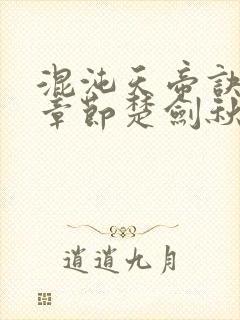 混沌天帝訣
章節楚劍秋
逍遙九月